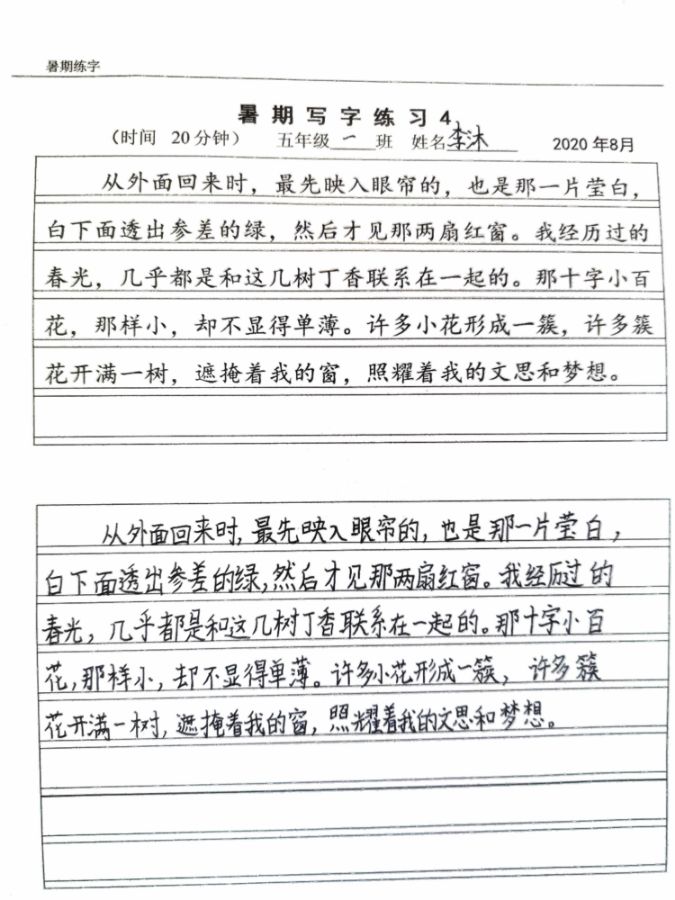 暑期练字
暑期写字练习4
（时间 20分钟） 五年级一班 姓名李沐 2020年8月
从外面回来时，最先映入眼帘的，也是那一片莹白，
白下面透出参差的绿，然后才见那两扇红窗。我经历过的
春光，几乎都是和这几树丁香联系在一起的。那十字小百
花，那样小，却不显得单薄。许多小花形成一簇，许多簇
花开满一树，遮掩着我的窗，照耀着我的文思和梦想。
从外面回来时，最先映入眼帘的，也是那一片莹白，
白下面透出参差的绿，然后才见那两扇红窗。我经历过的
春光，几乎都是和这几树丁香联系在一起的。那十字小百
花，那样小，却不显得单薄。许多小花形成一簇，许多簇
花开满一树，遮掩着我的窗，照耀着我的文思和梦想。